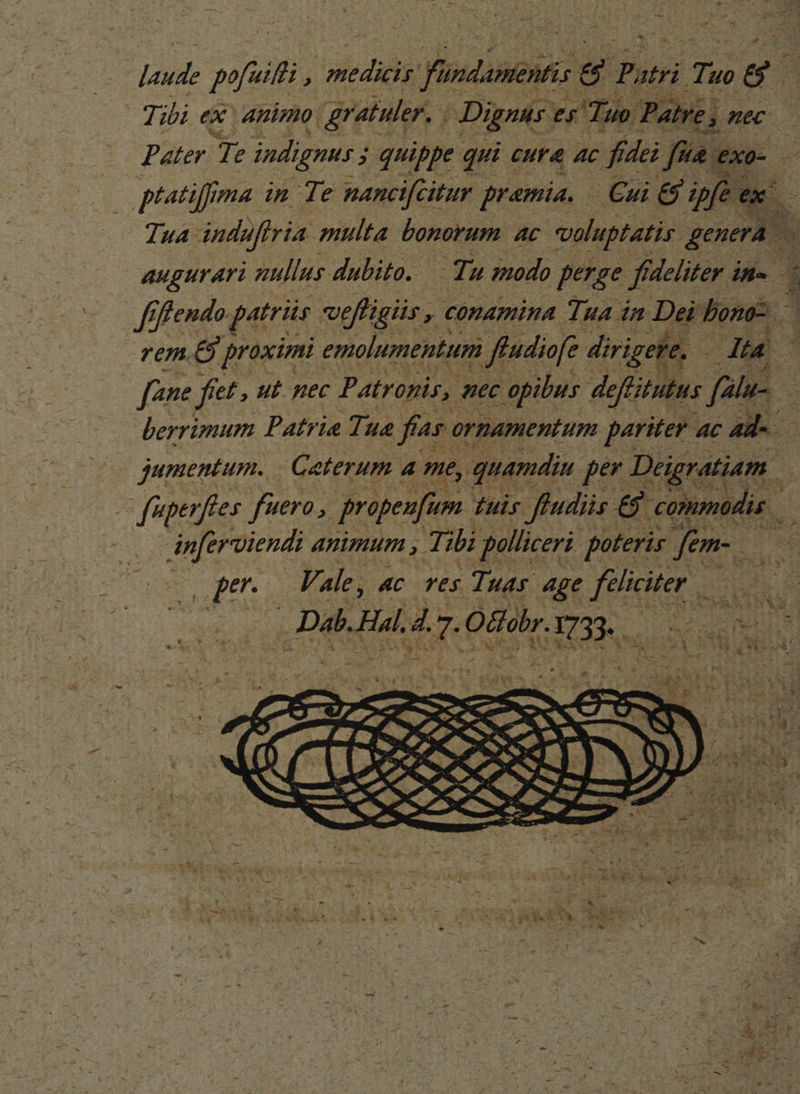 laude posuisti, medicis fundamentis & Patri Tuo &
Tibi ex animo gratuler. Dignus es Tuo Patre, nec
Pater Te indignus; quippe qui curæ ac fidei suæ exo-
ptatissima in Te nanciscitur præmia. Cui & ipse ex
Tua industria multa bonorum ac voluptatis genera
augurari nullus dubito. Tu modo perge fideliter in-
sistendo patriis vestigiis, conamina Tua in Dei hono-
rem & proximi emolumentum studiose dirigere. Ita
sane fiet, ut nec Patronis, nec opibus destitutus salu-
berrimum Patriæ Tuæ fias ornamentum pariter ac ad-
jumentum. Cæterum a me, quamdiu per Dei gratiam
superstes fuero, propensum tuis studiis & commodis
inserviendi animum, Tibi polliceri poteris sem-
per. Vale, ac res Tuas age feliciter
Dab. Hal. d. 7. Octobr. 1733.